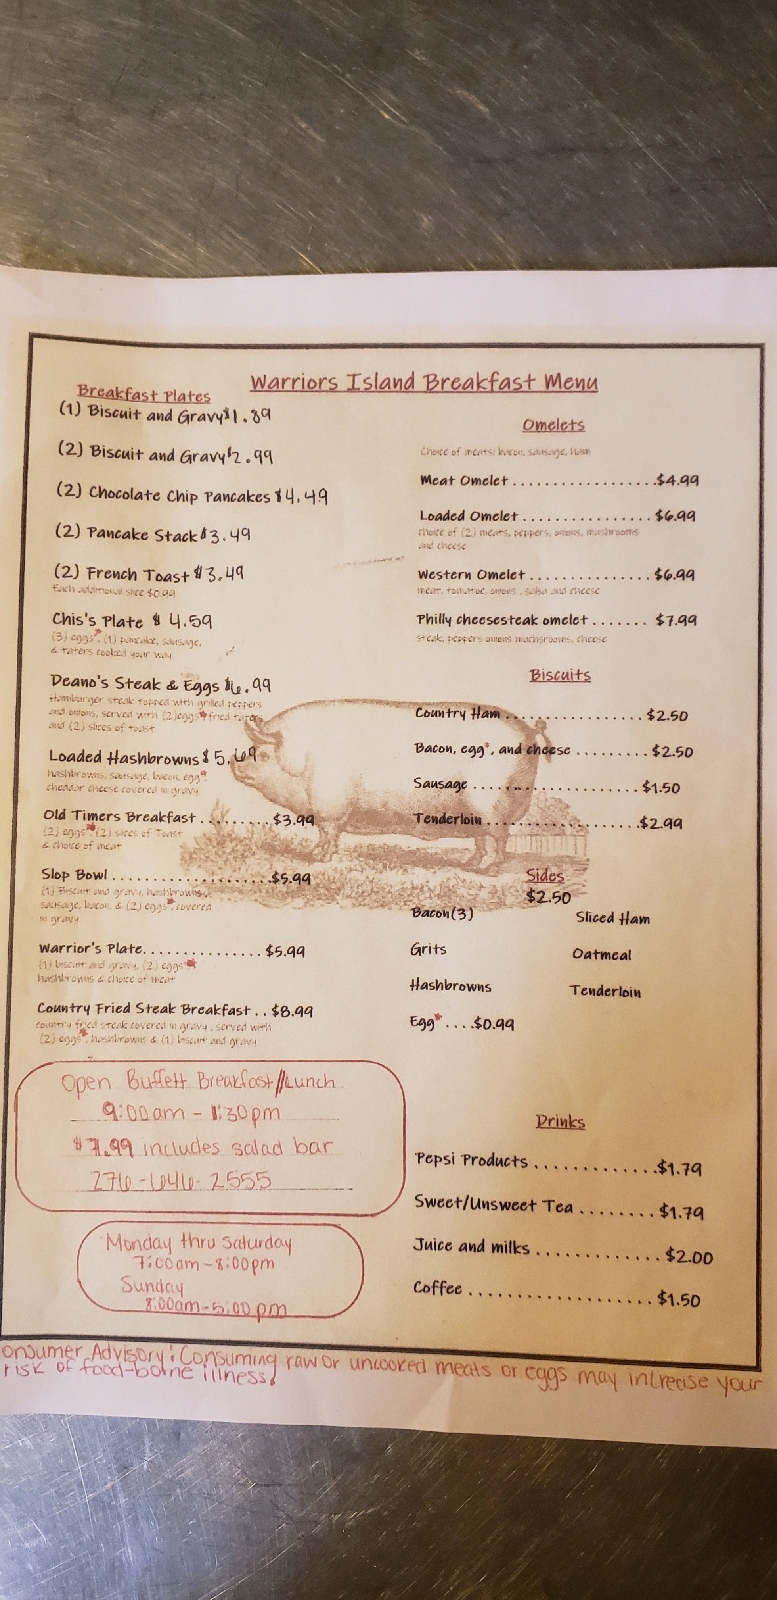 Warriors Island Breakfast Menu
Breakfast Plates
(1) Biscuit and Gravy $1.89
(2) Biscuit and Gravy $2.99
(2) Chocolate Chip Pancakes $4.49
(2) Pancake Stack $3.49
(2) French Toast $3.49
Each additional slice $0.99
Chis's Plate $4.59
(3) eggs*, (1) pancake, sausage,
& taters cooked your way
Deano's Steak & Eggs $6.99
Hamburger steak topped with grilled peppers
and onions, served with (2)eggs* fried taters
and (2) slices of toast
Loaded Hashbrowns $5.69
hashbrowns, sausage, bacon, egg*
cheddar cheese covered in gravy
Old Timers Breakfast ........$3.99
(2) eggs*, (2) slices of Toast
& choice of meat
Slop Bowl ....................$5.99
(1) Biscuit and gravy, hashbrowns,
sausage, bacon, & (2) eggs*, covered
in gravy
Warrior's Plate...............$5.99
(1) biscuit and gravy, (2) eggs*
hashbrowns & choice of meat
Country Fried Steak Breakfast .. $8.99
country fried steak covered in gravy, served with
(2) eggs*, hashbrowns & (1) biscuit and gravy
Open Buffett Breakfast//Lunch
9:00am - 1:30pm
$7.99 includes salad bar
276-646-2555
Monday thru Saturday
7:00am-8:00pm
Sunday
8:00am-5:00pm
Omelets
Choice of meats: bacon, sausage, ham
Meat Omelet ..................$4.99
Loaded Omelet ................$6.99
choice of (2) meats, peppers, onions, mushrooms
and cheese
Western Omelet ...............$6.99
meat, tomatoe, onions, salsa and cheese
Philly cheesesteak omelet ....... $7.99
steak, peppers onions mushsrooms, cheese
Biscuits
Country Ham ..................$2.50
Bacon, egg*, and cheese .........$2.50
Sausage ......................$1.50
Tenderloin ...................$2.99
Sides
$2.50
Bacon(3) Sliced Ham
Grits Oatmeal
Hashbrowns Tenderloin
Egg* ....$0.99
Drinks
Pepsi Products .............$1.79
Sweet/Unsweet Tea ........$1.79
Juice and milks .............$2.00
Coffee ......................$1.50
onsumer Advisory: Consuming raw or uncooked meats or eggs may increase your
risk of food-borne illness.